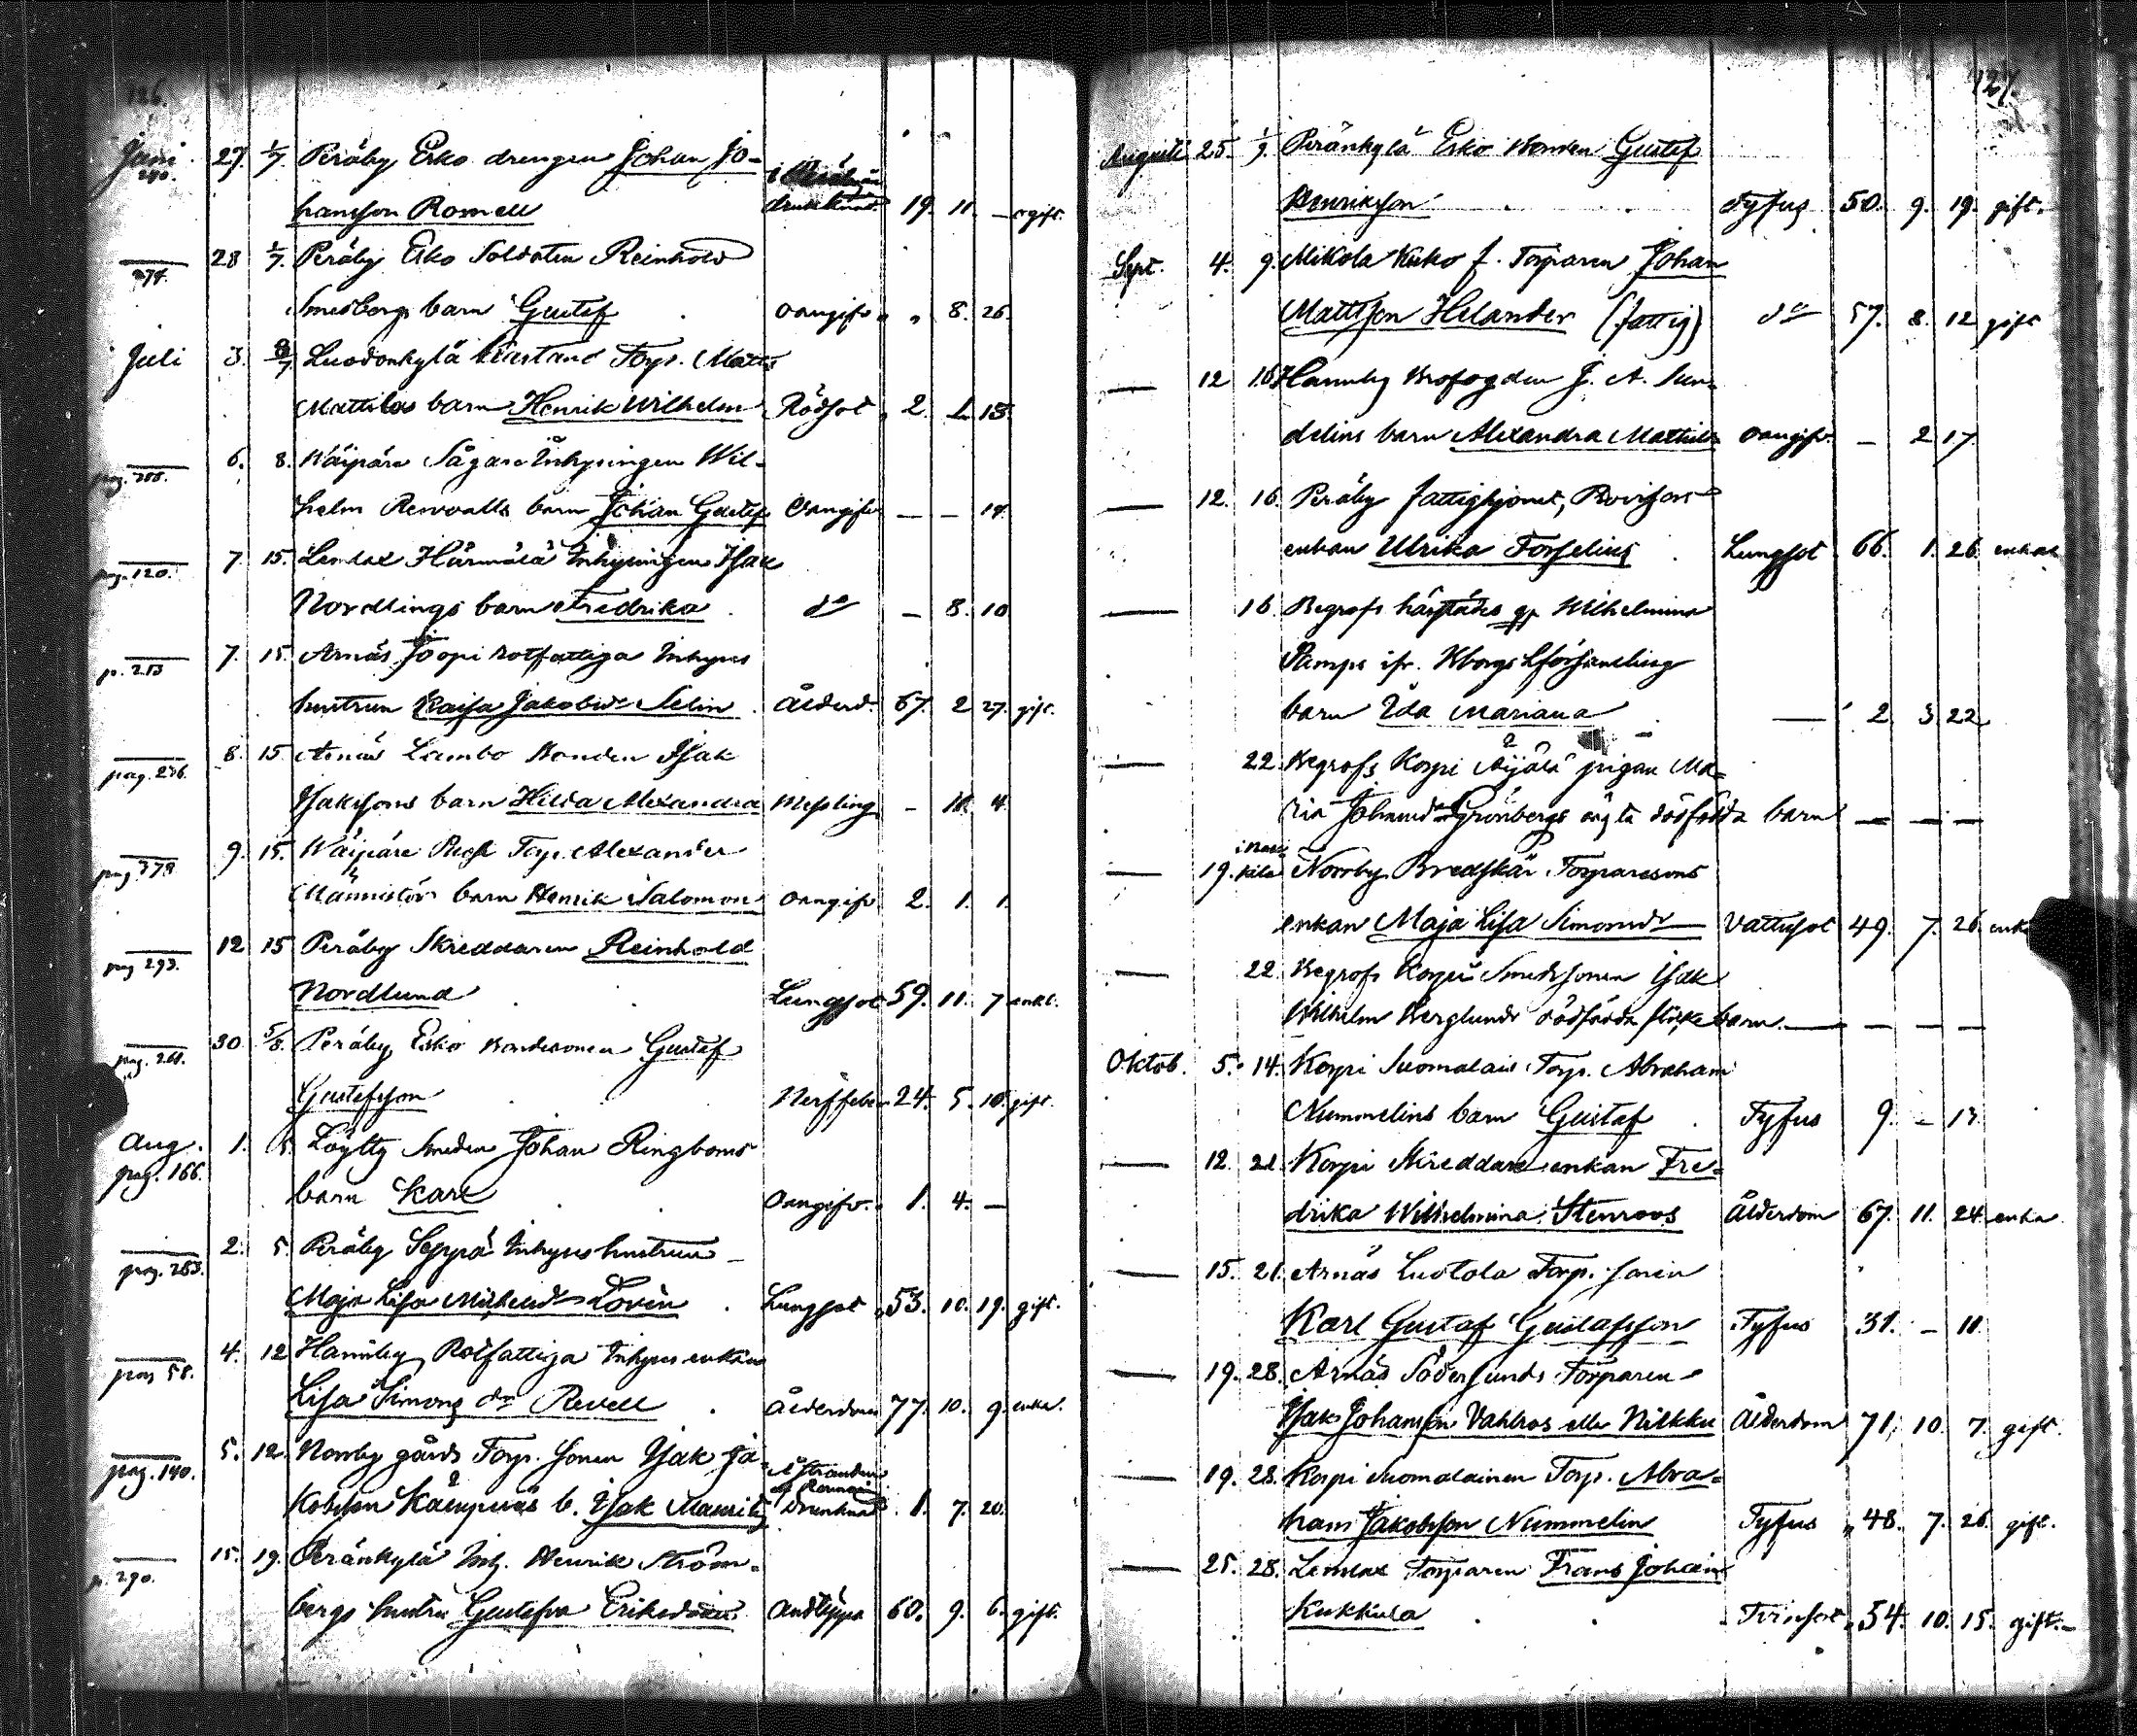 126.
Juni 27. 1/7. Peräby Erko drengen Johan Jo-
240. i
hansson Romell drunknad 19. 11. — ogift.
274. 28 1/7. Peräby Erko Soldaten Reinhold
Smedbergs barn Gustaf oangifv. „ 8. 26.
Juli 3. 8/7 Luodonkylä Torp. Matts
Mattilas barn Henrik Wilhelm Rödsot 2. 1. 13.
pag. 6. 8. Wäipäre Sågare Inhysingen Wil-
helm Renvalls barn Johan Gustaf oangifv — — 14.
pag. 120. 7. 15. Lemlax Härmälä Inhysingen Isak
Nordlings barn Fredrika do — 8. 10
p. 213 7. 15. Arnäs Joopi rotfattiga Inhyses
hustrun Kaisa Jakobsdr Selin Ålderd. 67. 2 27. gift.
pag. 236. 8. 15 Arnäs Lambo Bonden Isak
Isakssons barn Hilda Alexandra Messling — 10. 4.
pag. 378 9. 15. Wäipäre Torp. Alexander
Männistös barn Henrik Salomon oangifv 2. 1. 1.
pag 293. 12 15 Peräby Skreddaren Reinhold
Nordlund Lungsot 59. 11. 7 enkl.
pag. 261. 30 5/8. Peräby Erko Bondesonen Gustaf
Gustafsson Nerffeber 24. 5. 10. gift.
Aug. 1. 5. Löyttg Smeden Johan Ringboms
pag. 166.
barn Karl oangifv. 1. 4. —
pag. 253. 2. 5. Peräby Seppä Inhyses hustrun
Maja Lisa Michelsdr Lovén Lungsot 53. 10. 19. gift.
pag 58. 4. 12 Hannby Rotfattiga Inhyses enkan
Lisa Simons dr Revell Ålderdom 77. 10. 9. enka.
pag. 140. 5. 12. Norrby gårds Torp. sonen Isak Ja-
kobsson Kämpnäs b. Isak Mauritz Drunknad 1. 7. 20.
p. 290. 15. 19. Peränkylä Inh. Henrik Ström-
bergs hustru Gustafva Eriksdotter Andtäppa 60. 9. 6. gift.
127.
Augusti 25. 1/9. Peränkylä Erko Bonden Gustaf
Henriksson Tyfus 50. 9. 19. gift.
Sept. 4. 9. Mikola Kuko f. Torparen Johan
Mattsson Helander (fattig) do 57. 8. 12 gift
— 12 16 Hannby Brofogden J. A. Sun-
delins barn Alexandra Mathilda oangifv. — 2 17.
— 12. 16. Peräby fattighjonet, Provisors
enkan Ulrika Forselius Lungsot 66. 1. 26. enka
— 16. Begrofs härstädes Wilhelmina
Ramps ifr. Kborgs Lförsamling
barn Ida Mariana — 2 3 22
— 22. Begrofs Korpi Äijälä pigan Ma-
ria Johansdr Grönbergs oägta dödfödda barn — — —
— 19. Norrby Bredskär Torparesons
enkan Maja Lisa Simonsdr Vattusot 49. 7. 26. enka
— 22. Begrofs Korpi Smedssonen Isak
Wilhelm Berglunds dödfödda flickebarn. — — — —
Oktob. 5. 14. Korpi Suomalais Torp. Abraham
Nummelins barn Gustaf Tyfus 9. — 13.
— 12. 21. Korpi Skreddare enkan Fre-
drika Wilhelmina Stenroos Ålderdom 67. 11. 24. enka
— 15. 21. Arnäs Luotola Torp. sonen
Karl Gustaf Gustafsson Tyfus 31. — 11.
— 19. 28. Arnäs Södersunds Torparen
Isak Johansson Vahlros eller Nikku Ålderdom 71. 10. 7. gift.
— 19. 28. Korpi Suomalainen Torp. Abra-
ham Jakobsson Nummelin Tyfus 48. 7. 26. gift.
— 25. 28. Lemlax Torparen Frans Johan
Kukkula Tvinsot 54. 10. 15. gift.